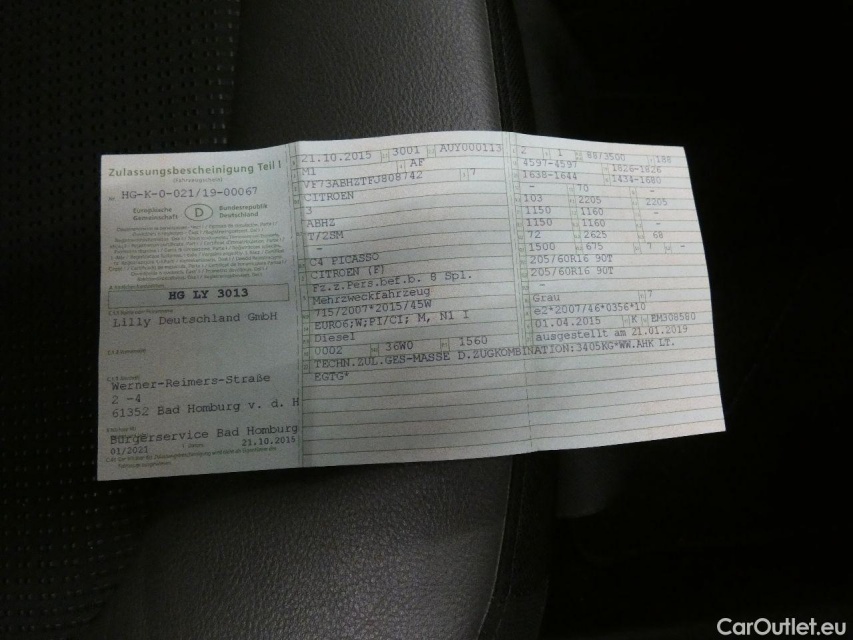 Zulassungsbescheinigung Teil I
(Fahrzeugschein)
HG-K-0-021/19-00067
Europäische Gemeinschaft
D
Bundesrepublik Deutschland
HG LY 3013
Lilly Deutschland GmbH
Werner-Reimers-Straße
2 -4
61352 Bad Homburg v. d. H
Bürgerservice Bad Homburg
01/2021 21.10.2015
21.10.2015 3001 AUY000113
M1 AF
VF73ABHZTFJ808742 7
CITROEN
3
ABHZ
T/2SM
-
C4 PICASSO
CITROEN (F)
Fz.z.Pers.bef.b. 8 Spl.
Mehrzweckfahrzeug
715/2007*2015/45W
EURO6;W;PI/CI; M, N1 I
Diesel
0002 36W0 1560
TECHN.ZUL.GES-MASSE D.ZUGKOMBINATION:3405KG*WW.AHK LT.
EGTG*
2 1 88/3500 188
4597-4597 1826-1826
1638-1644 1434-1680
- 70 -
103 2205 2205
1150 1160 -
1150 1160 -
72 2625 68
1500 675 7 -
205/60R16 90T
205/60R16 90T
-
Grau 7
e2*2007/46*0356*10
01.04.2015 K EM308580
ausgestellt am 21.01.2019
CarOutlet.eu